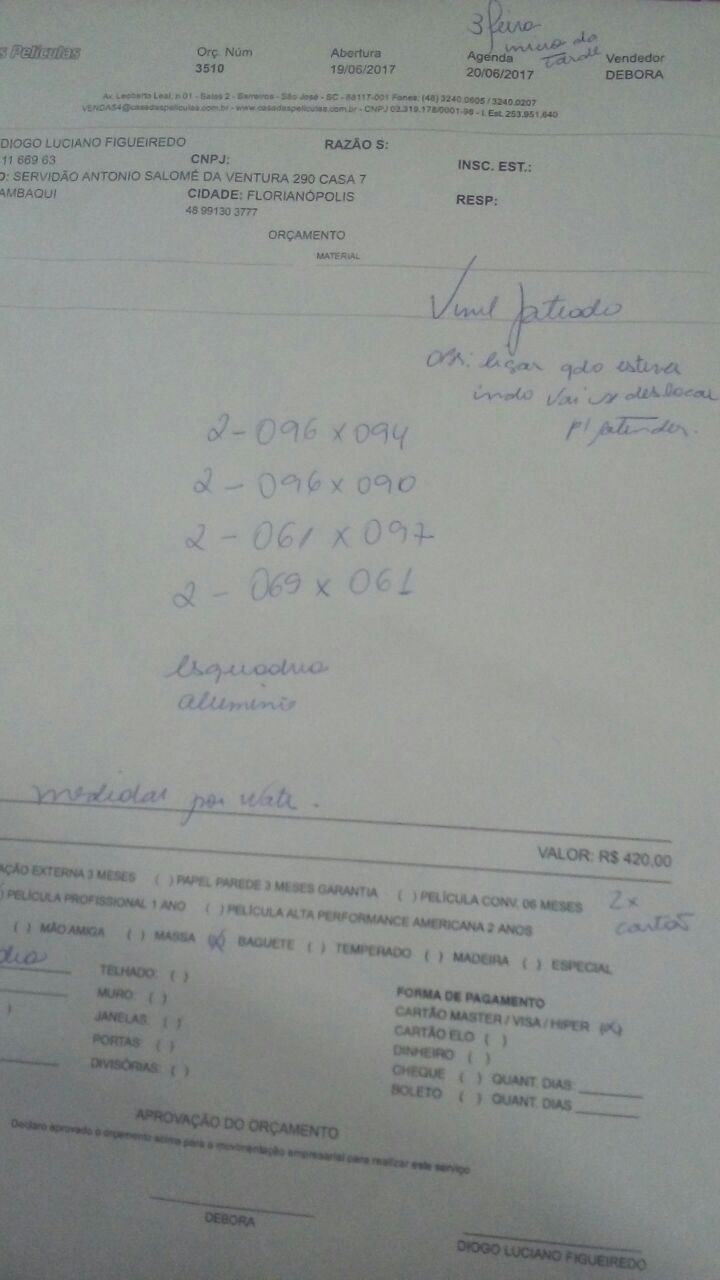 3 feira
inicio da
tarde
s Películas
Orç. Núm
3510
Abertura
19/06/2017
Agenda
20/06/2017
Vendedor
DEBORA
Av. Leoberto Leal, n 01 - Salas 2 - Barreiros - São José - SC - 88117-001 Fones: (48) 3240.0605 / 3240.0207
VENDAS4@casadaspeliculas.com.br - www.casadaspeliculas.com.br - CNPJ 02.319.178/0001-96 - I. Est. 253.951.640
DIOGO LUCIANO FIGUEIREDO RAZÃO S:
11 669 63 CNPJ: INSC. EST.:
O: SERVIDÃO ANTONIO SALOMÉ DA VENTURA 290 CASA 7
AMBAQUI CIDADE: FLORIANÓPOLIS RESP:
48 99130 3777
ORÇAMENTO
MATERIAL
Vinil Jateado
Obs: ligar qdo estiver
indo vai se deslocar
p/ atender.
2 - 096 x 094
2 - 096 x 090
2 - 061 x 097
2 - 069 x 061
esquadria
aluminio
medidas por
VALOR: R$ 420,00
AÇÃO EXTERNA 3 MESES ( ) PAPEL PAREDE 3 MESES GARANTIA ( ) PELÍCULA CONV. 06 MESES
2x
cartão
) PELÍCULA PROFISSIONAL 1 ANO ( ) PELÍCULA ALTA PERFORMANCE AMERICANA 2 ANOS
( ) MÃO AMIGA ( ) MASSA (x) BAGUETE ( ) TEMPERADO ( ) MADEIRA ( ) ESPECIAL
TELHADO: ( )
MURO: ( )
JANELAS: ( )
PORTAS: ( )
DIVISÓRIAS: ( )
FORMA DE PAGAMENTO
CARTÃO MASTER / VISA / HIPER (x)
CARTÃO ELO ( )
DINHEIRO ( )
CHEQUE ( ) QUANT. DIAS:
BOLETO ( ) QUANT. DIAS
APROVAÇÃO DO ORÇAMENTO
Declaro aprovado o orçamento acima para a movimentação empresarial para realizar este serviço
DEBORA
DIOGO LUCIANO FIGUEIREDO